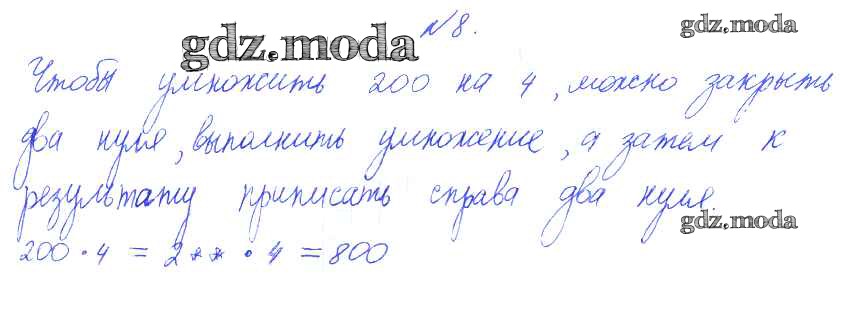 №8.
gdz.moda
gdz.moda
Чтобы умножить 200 на 4, можно закрыть
два нуля, выполнить умножение, а затем к
результату приписать справа два нуля.
gdz.moda
200 · 4 = 2** · 4 = 800